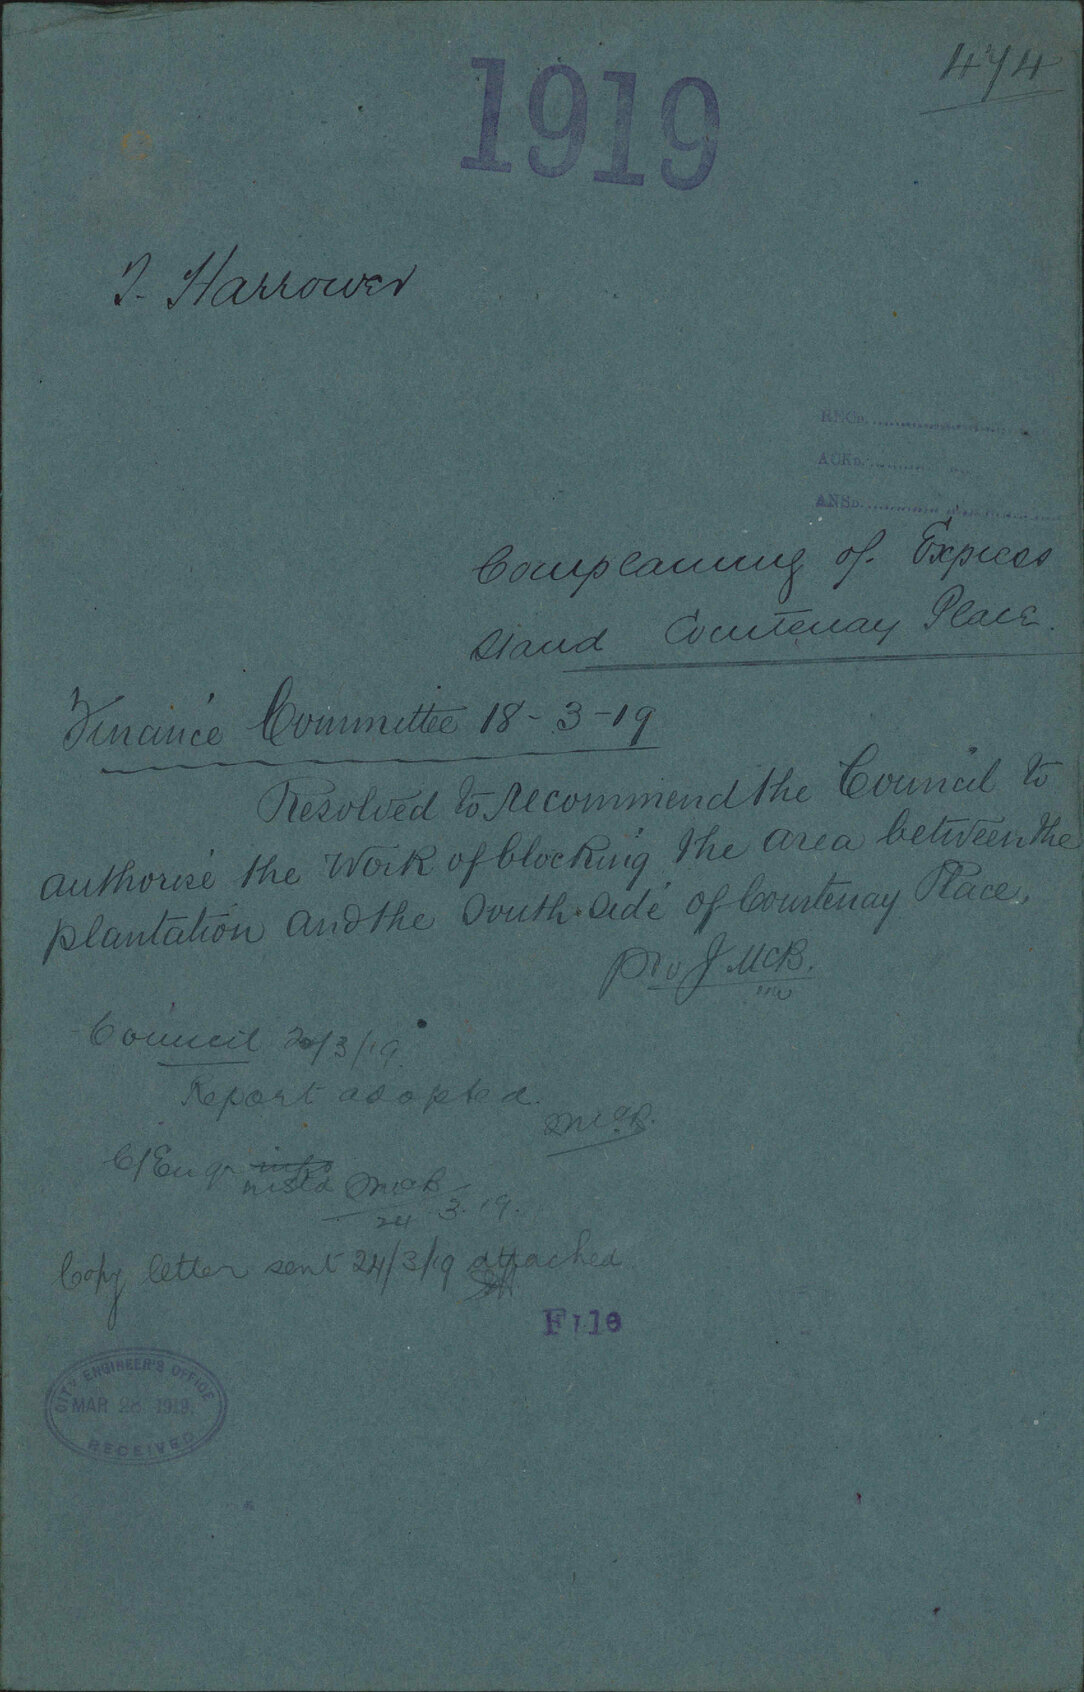 474
1919
J. Harrower
RECD.
ACKD.
ANSD.
Complaining of Express
Stand Courtenay Place.
Finance Committee 18-3-19
Resolved to recommend the Council to
authorise the work of blocking the area between the
plantation and the South side of Courtenay Place.
pro J McB.
Council 20/3/19
Report adopted.
McB.
C/Engr
McB
24 3.19.
Copy letter sent 24/3/19 attached
File
CITY ENGINEER'S OFFICE
MAR 28 1919
RECEIVED